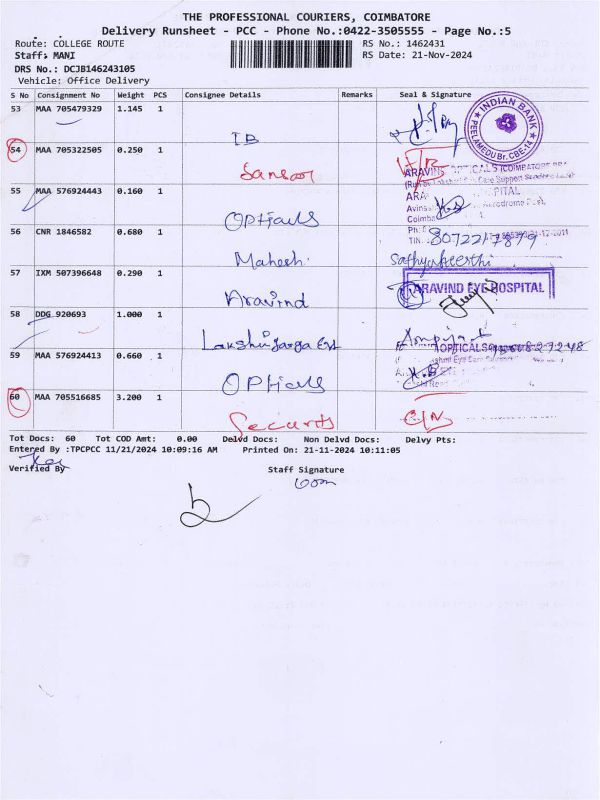 THE PROFESSIONAL COURIERS, COIMBATORE
Delivery Runsheet - PCC - Phone No.:0422-3505555 - Page No.:5
Route: COLLEGE ROUTE RS No.: 1462431
Staff: MANI RS Date: 21-Nov-2024
DRS No.: DCJB146243105
Vehicle: Office Delivery
S No Consignment No Weight PCS Consignee Details Remarks Seal & Signature
53 MAA 705479329 1.145 1 IB
INDIAN BANK
PEELAMEDU Br. CBE-14
54 MAA 705322505 0.250 1 Sansoor
ARAVIND OPTICALS (COIMBATORE
55 MAA 576924443 0.160 1 Opticals
56 CNR 1846582 0.680 1 Mahesh
8072217879
Sathyakeerthi
57 IXM 507396648 0.290 1 Aravind
ARAVIND EYE HOSPITAL
58 DDG 920693 1.000 1
59 MAA 576924413 0.660 1 Opticals
OPTICALS
60 MAA 705516685 3.200 1 Security
Tot Docs: 60 Tot COD Amt: 0.00 Delvd Docs: Non Delvd Docs: Delvy Pts:
Entered By :TPCPCC 11/21/2024 10:09:16 AM Printed On: 21-11-2024 10:11:05
Verified By Staff Signature